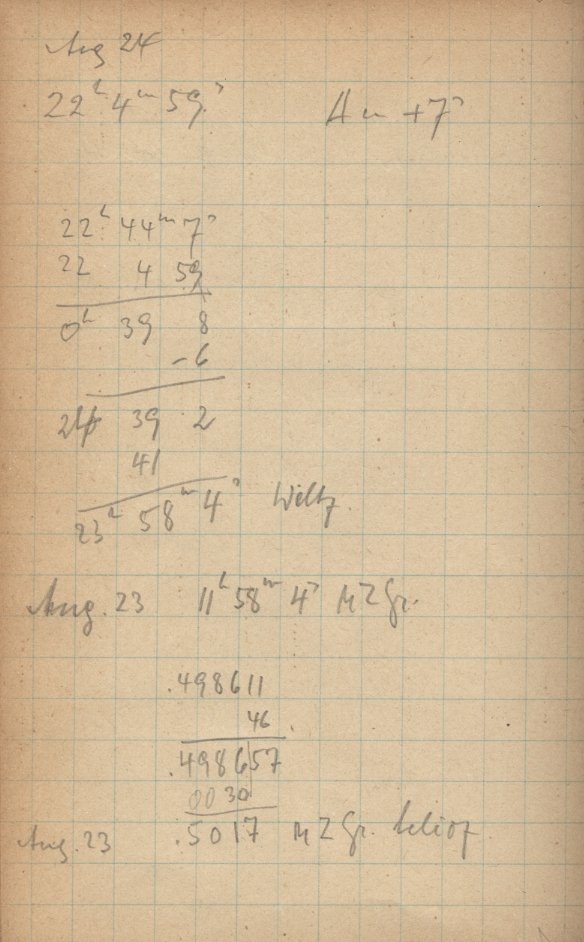 Aug 24
22ʰ 4ᵐ 59ˢ +7ˢ
22ʰ 44ᵐ 7ˢ
22 4 59
0ʰ 39 8
-6
39 2
41
23ʰ 58ᵐ 4ˢ Weltz.
Aug. 23 11ʰ 58ᵐ 4ˢ M Z Gr.
.498611
46
.498657
0030
Aug. 23 .5017 M Z Gr. helioz.